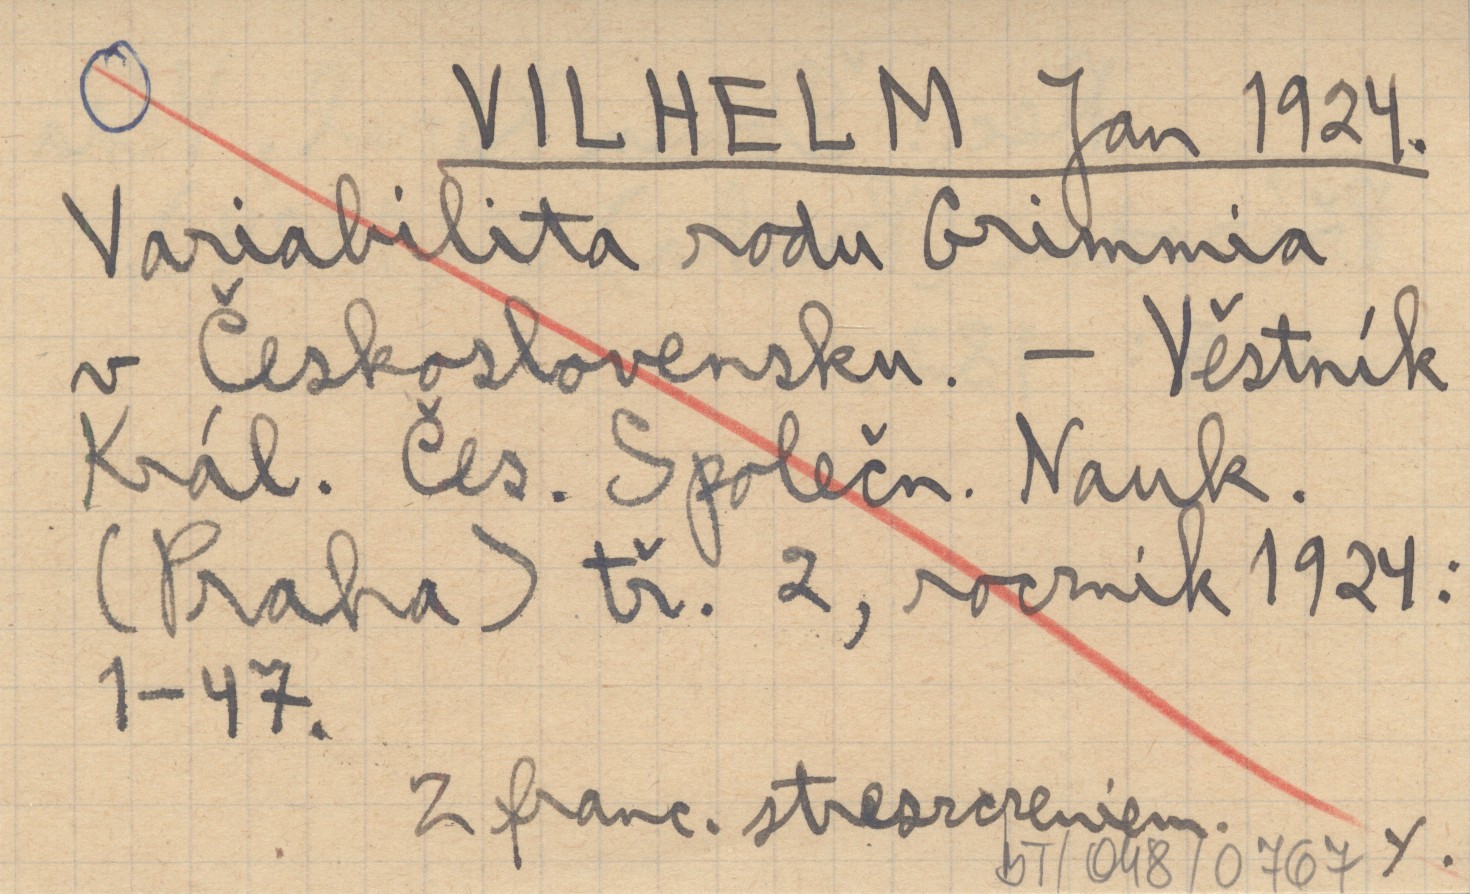 VILHELM Jan 1924.
Variabilita rodu Grimmia
v Československu. — Věstník
Král. Čes. Společn. Nauk.
(Praha) tř. 2, rocznik 1924:
1-47.
Z franc. streszczeniem.
bT/048/0767 Y.